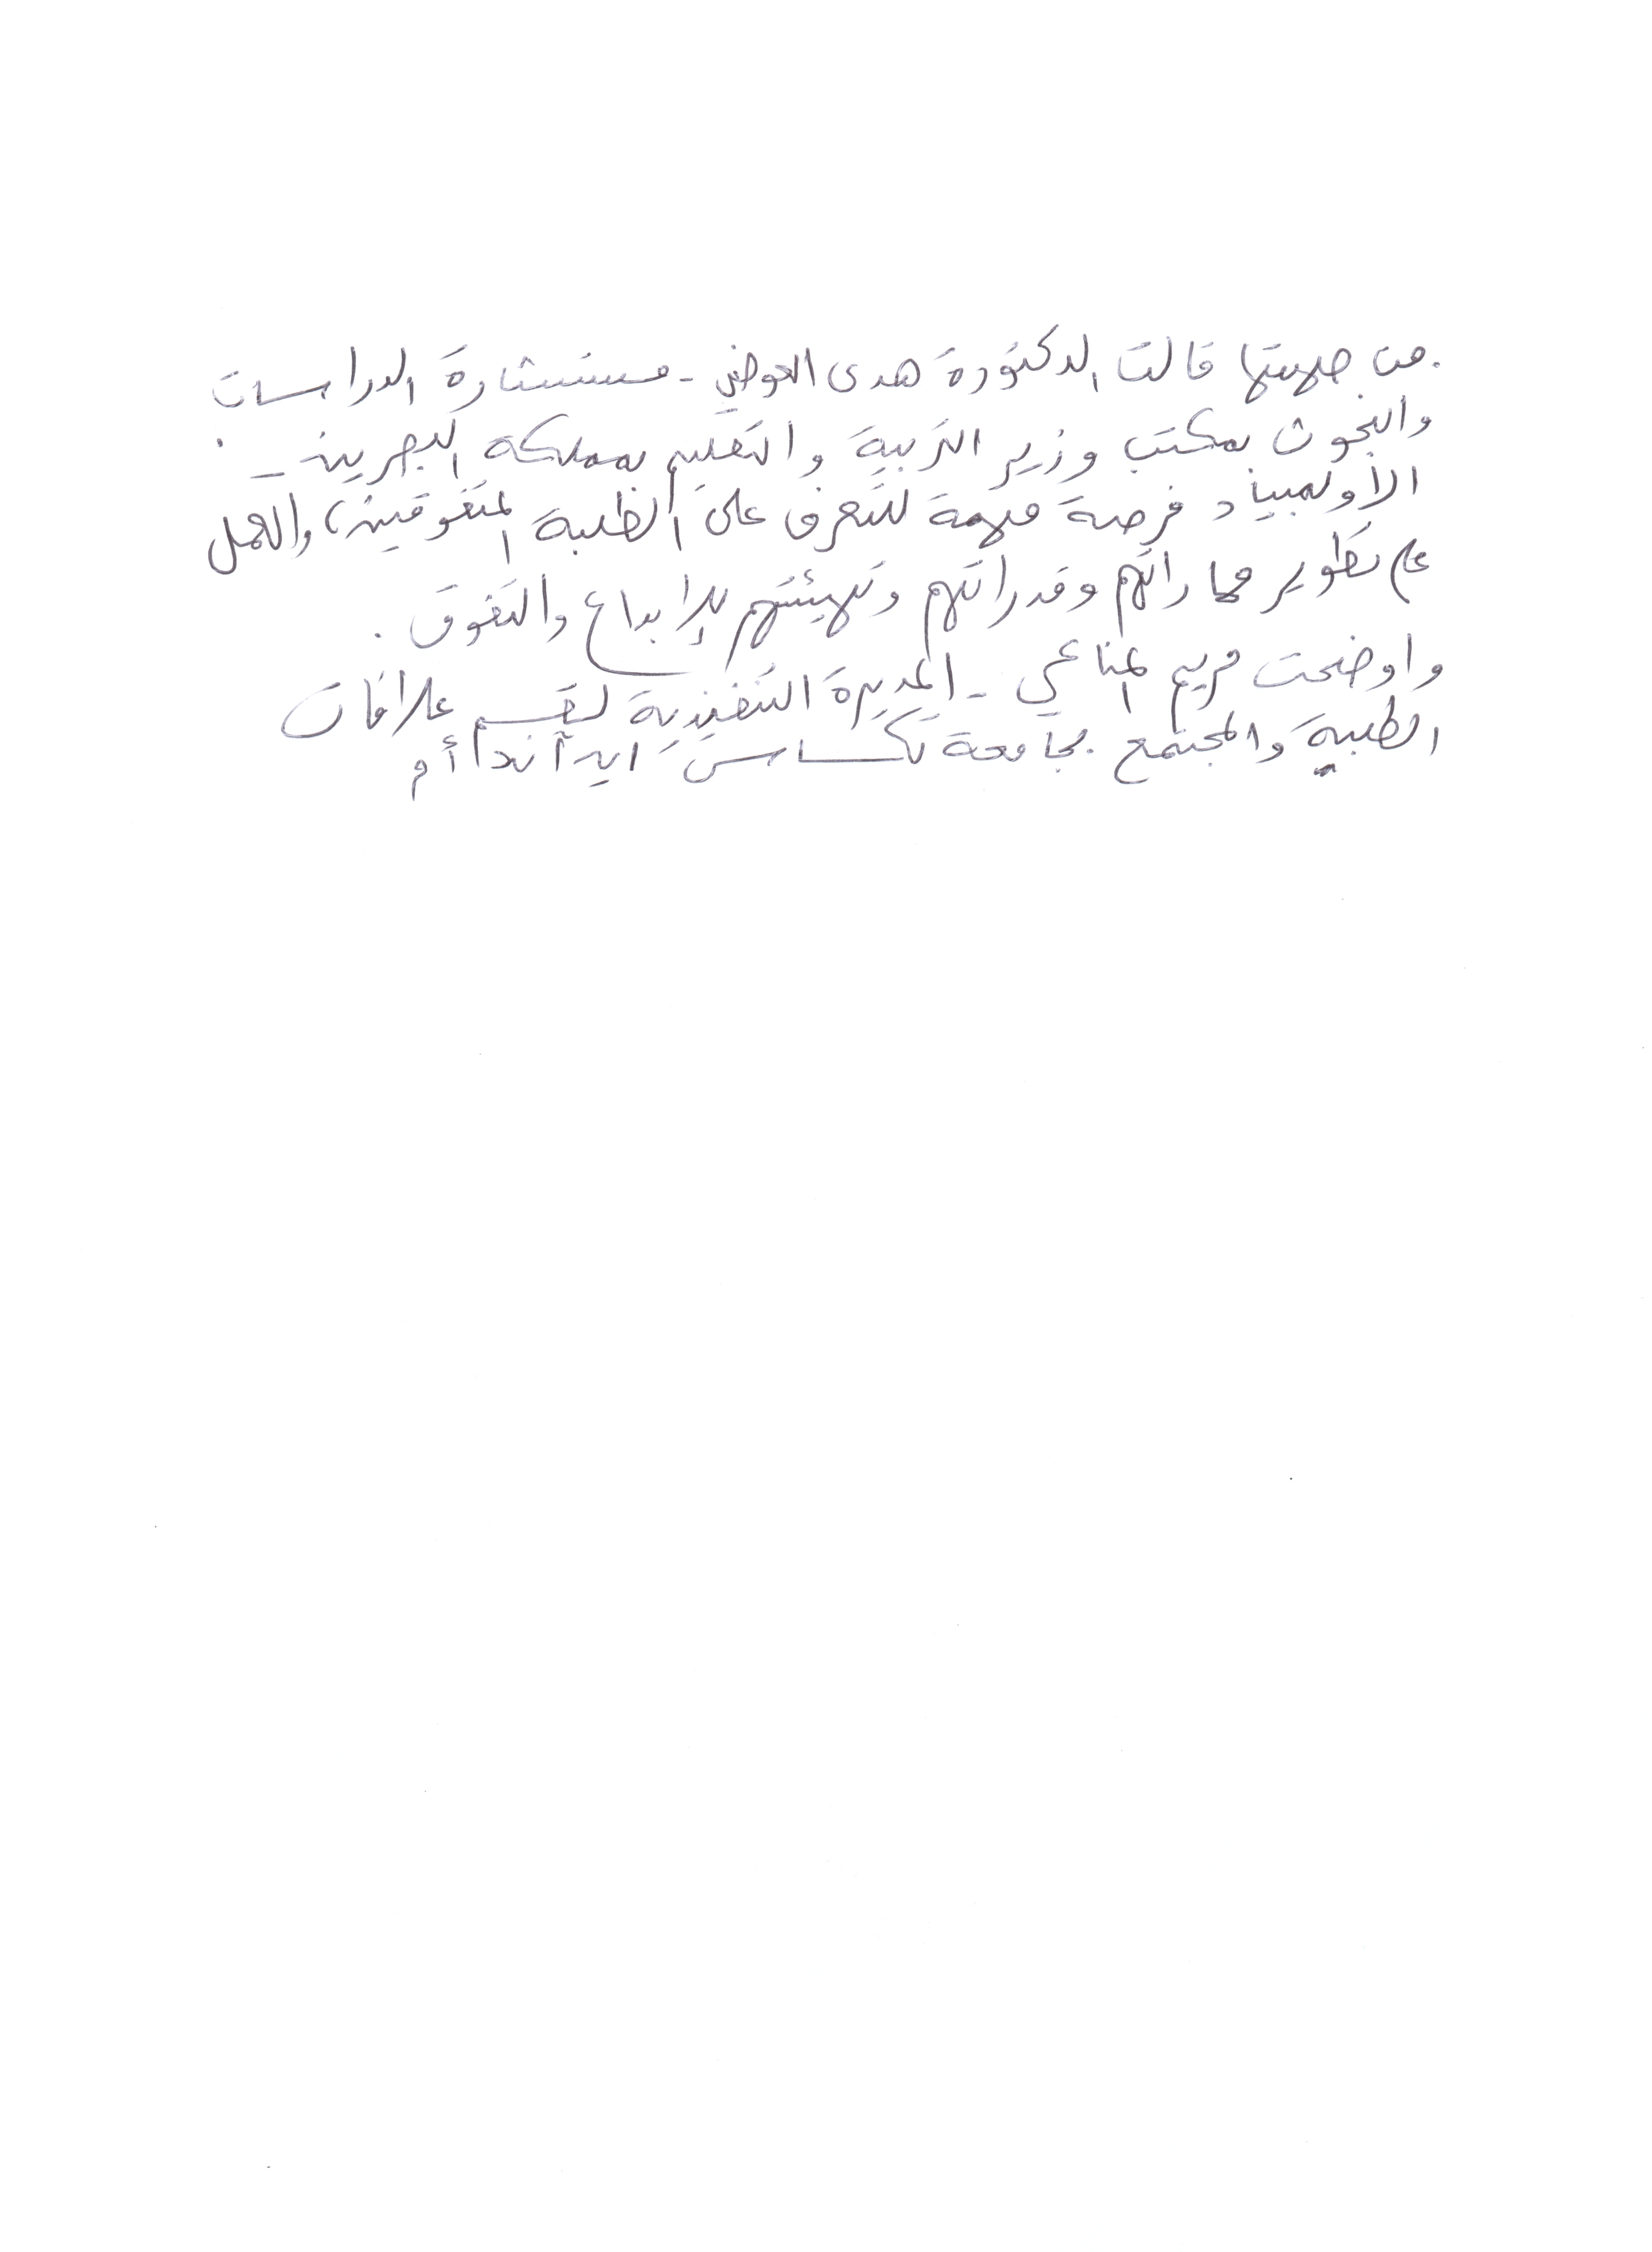 .من جهتها قالت الدكتورة هدى العوضي - مستشارة الدراسات
والبحوث بمكتب وزير التربية والتعليم بمملكة البحرين -
الاولمبياد فرصة مهمة للتعرف على الطلبة المتفوقين، والعمل
على تطوير مهاراتهم وقدراتهم وتهيئتهم للإبداع والتفوق .
واوضحت مريم المناعي - المديرة التنفيذية لقسم علاقات
الطلبة والمجتمع بجامعة تكساس ايه آند أم